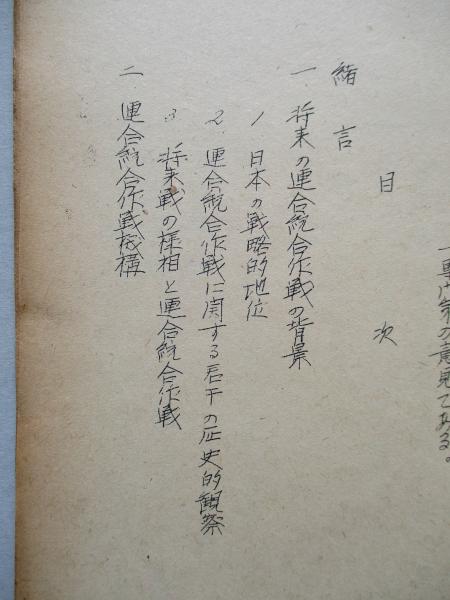 一専門家の意見である。
目次
緒言
一 将来の連合統合作戦の背景
1 日本の戦略的地位
2 連合統合作戦に関する若干の歴史的観察
3 将来戦の様相と連合統合作戦
二 連合統合作戦機構